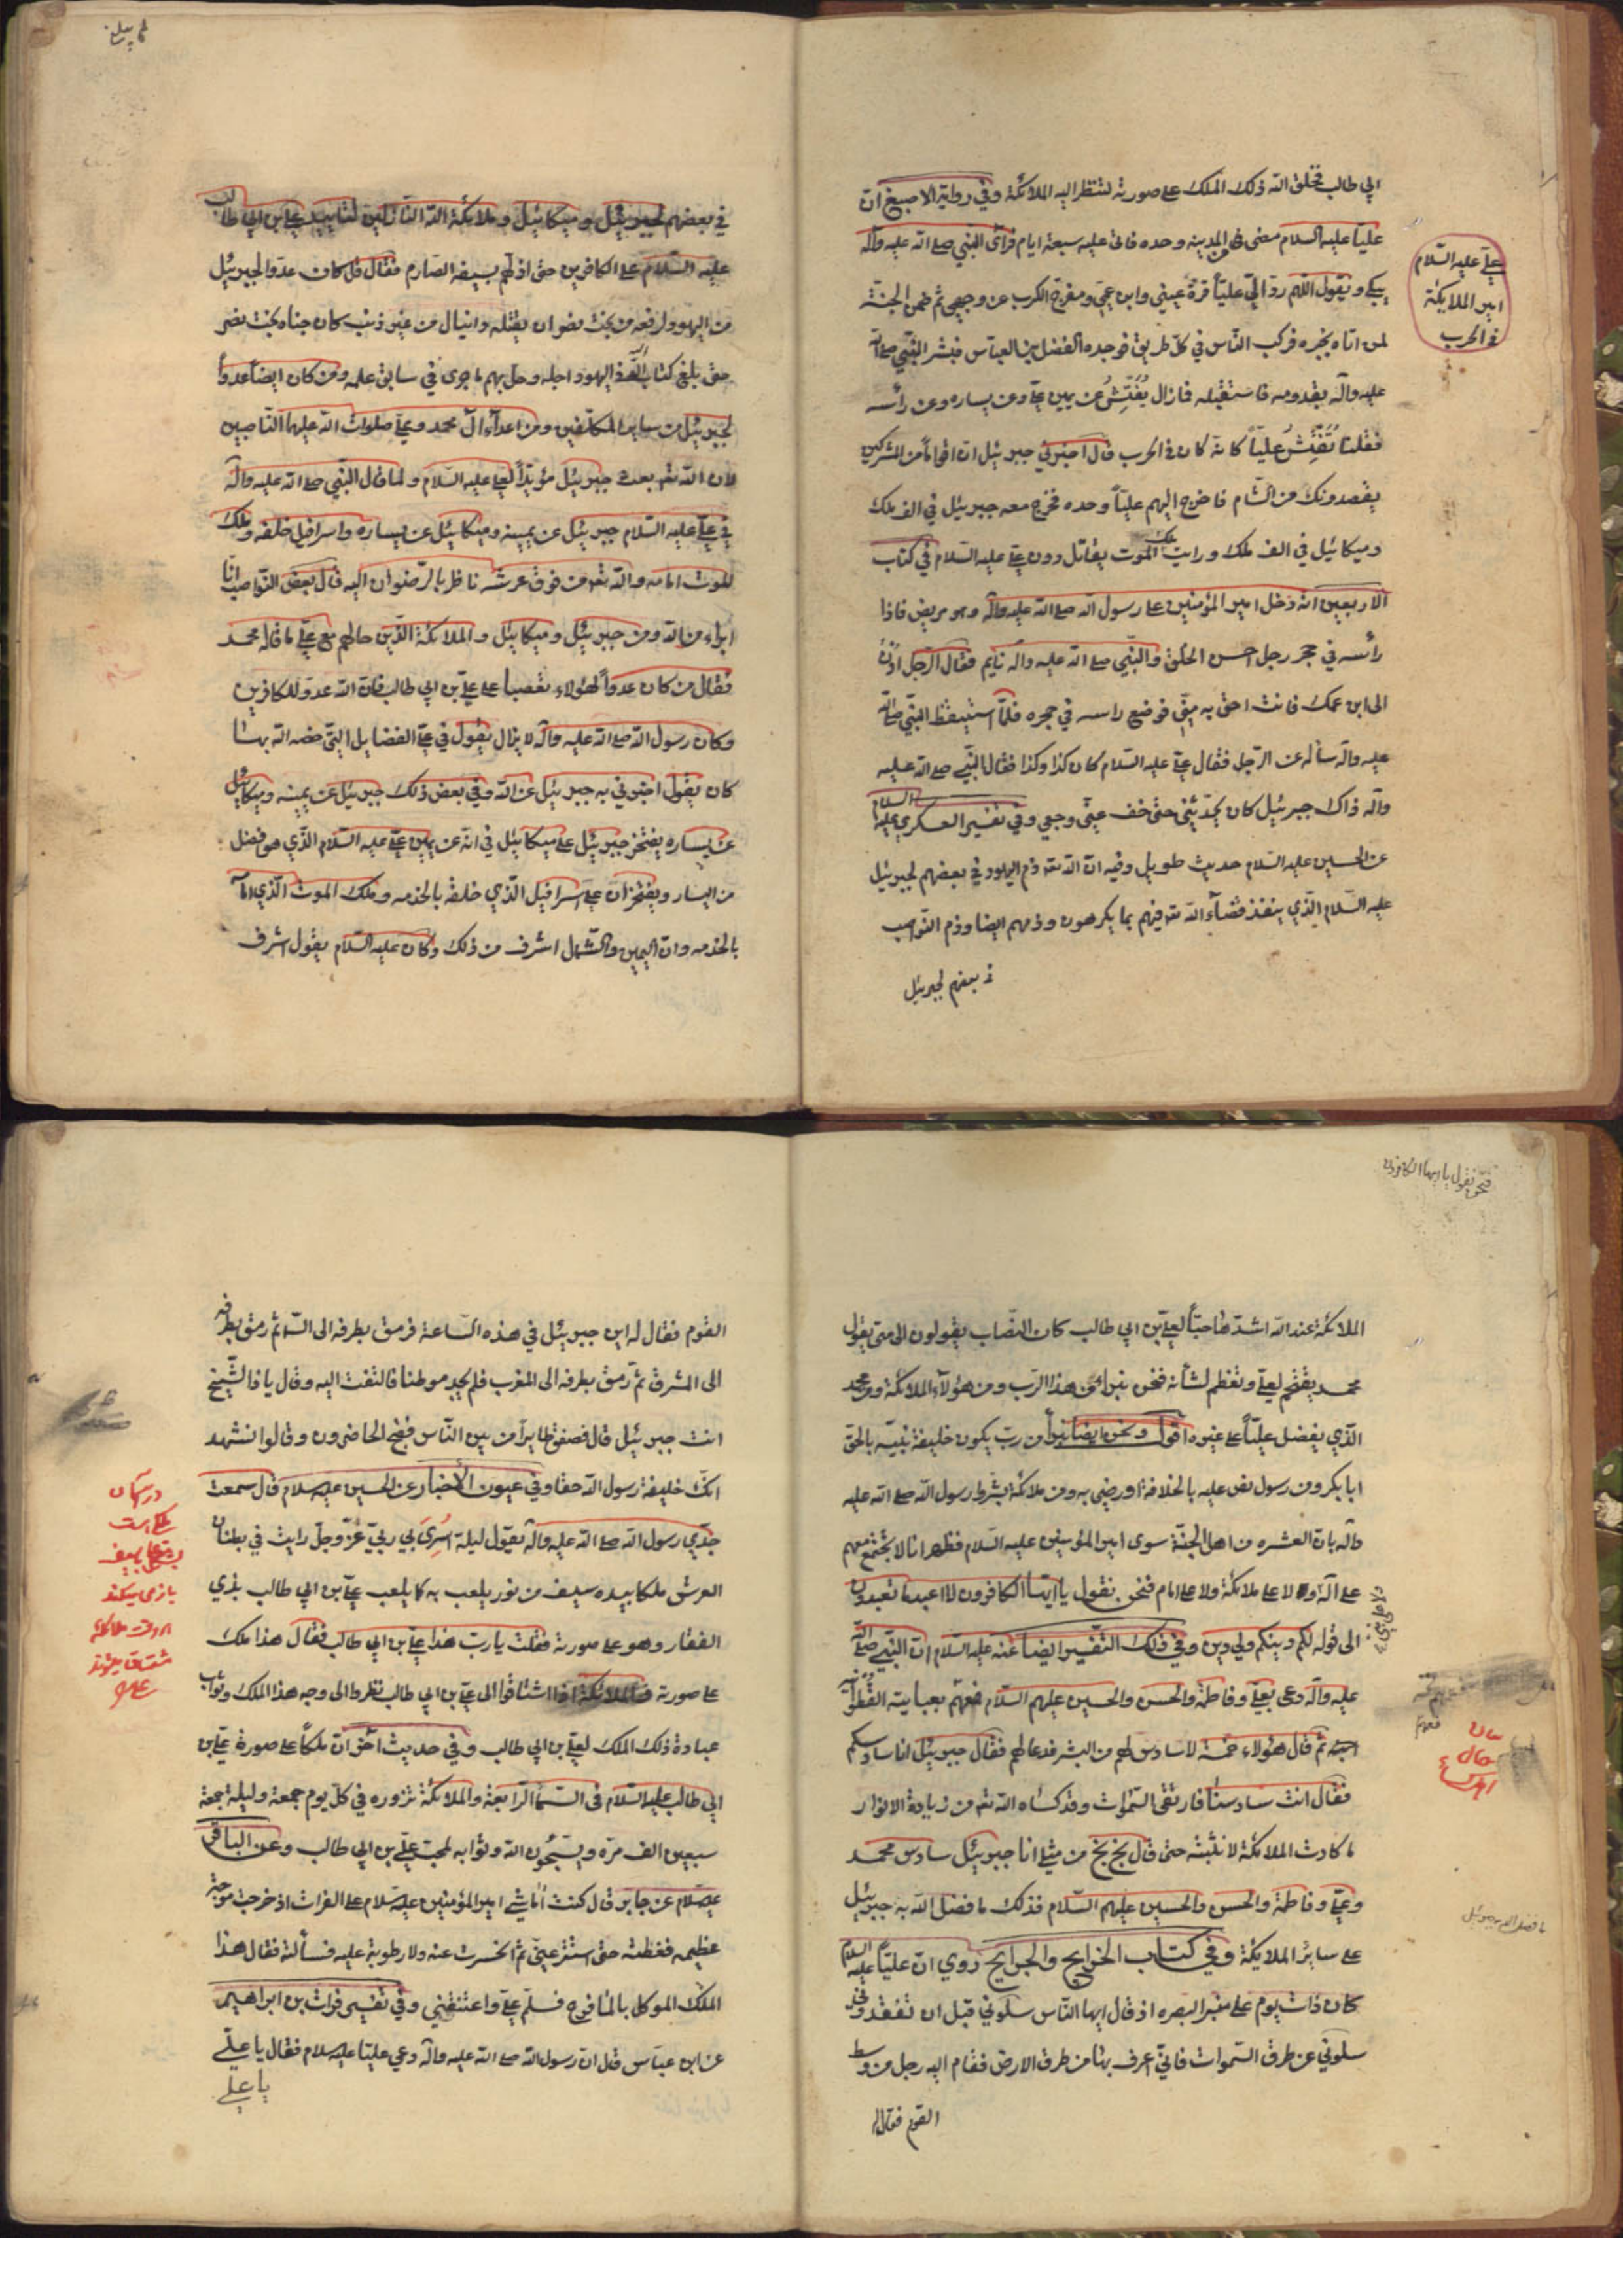 ابي طالب فخلق الله ذلك الملك على صورته لتنظر اليه الملائكة وفي رواية الاصبغ ان
عليا عليه السلام مضى من المدينه وحده فاتى عليه سبعة ايام فرأى النبي صلى الله عليه وآله
يبكي ويقول اللهم ردّ اليّ علياً قرة عيني وابن عمي ومفرج الكرب عن وجهي ثم ضمن الجنة
لمن اتاه بخبره فركب الناس في كل طريق فوجده الفضل بن العباس فبشر النبي صلى الله
عليه وآله بقدومه فاستقبله فما زال يُفَتِّشُ عن يمين علي وعن يساره وعن رأسه
فقلنا تُفَتِّشُ علياً كانه كان في الحرب قال اخبرني جبرئيل ان اقواماً من المشركين
يقصدونك من الشام فاخرج اليهم علياً وحده فخرج معه جبرئيل في الف ملك
وميكائيل في الف ملك ورايت ملك الموت يقاتل دون علي عليه السلام في كتاب
الاربعين انه دخل امير المؤمنين على رسول الله صلى الله عليه وآله وهو مريض فاذا
رأسه في حجر رجل احسن الخلق والنبي صلى الله عليه وآله نايم فقال الرجل ادن
الى ابن عمك فانت احق به مني فوضع راسه في حجره فلما استيقظ النبي صلى الله
عليه وآله سأله عن الرجل فقال علي عليه السلام كان كذا وكذا فقال النبي صلى الله عليه
وآله ذاك جبرئيل كان يحدثني حتى خف عني وجعي وفي تفسير العسكري عليه السلام
عن الحسين عليه السلام حديث طويل وفيه ان الله تعه ذم اليهود في بعضهم لجبرئيل
عليه السلام الذي ينفذ قضآء الله تعه فيهم بما يكرهون وذمهم ايضا وذم النواصب
في بعضهم لجبرئيل
علي عليه السلام
امير الملايكة
في الحرب
في بعضهم لجبرئيل وميكائيل وملائكة الله النازلين لتاييد علي بن ابي طالب
عليه السلام على الكافرين حتى اذلهم بسيفه الصارم فقال قل من كان عدوا لجبرئيل
من اليهود لرفعه من بخت نصر ان يقتله دانيال من غير ذنب كان جناه بخت نصر
حتى بلغ كتاب الله في اليهود اجله وحل بهم ما جرى في سابق علمه ومن كان ايضا عدواً
لجبرئيل من ساير المكلفين ومن اعدآء آل محمد وعلي صلوات الله عليهما الناصبين
لان الله تعه بعث جبرئيل مؤيداً لعلي عليه السلام ولما قال النبي صلى الله عليه وآله
في علي عليه السلام جبرئيل عن يمينه وميكائيل عن يساره واسرافيل خلفه وملك
الموت امامه والله تعه من فوق عرشه ناظر بالرضوان اليه قال بعض النواصب انا
ابراء من الله ومن جبرئيل وميكائيل والملائكة الذين حالهم مع علي ما قاله محمد
فقال من كان عدواً لهؤلاء تعصبا على علي بن ابي طالب فان الله عدو للكافرين
وكان رسول الله صلى الله عليه وآله لا يزال يقول في علي الفضايل التي خصه الله بها
كان يقول اخبرني به جبرئيل عن الله وفي بعض ذلك جبرئيل عن يمينه وميكائيل
عن يساره يفتخر جبرئيل على ميكائيل في انه عن يمين علي عليه السلام الذي هو افضل
من اليسار ويفتخران على اسرافيل الذي خلفه بالخدمه وملك الموت الذي امامه
بالخدمه وان اليمين والشمال اشرف من ذلك وكان عليه السلام يقول اشرف
فنحن نقول يا ايها الكافرون
الملائكة عند الله اشدها حباً لعلي بن ابي طالب كان النصاب يقولون الى متى يقول
محمد يفخم لعلي وتعظم لشأنه فنحن نبرأ من هذا الرب ومن هؤلآء الملائكة ومن محمد
الذي يفضل علياً على غيره اقول ونحن ايضا نبرأ من رب يكون خليفة نبيه بالحق
ابا بكر ومن رسول نص عليه بالخلافة او رضي به ومن ملائكة بشروا رسول الله صلى الله عليه
وآله بان العشره من اهل الجنة سوى امير المؤمنين عليه السلام فظهر انا لا نجتمع معهم
على آله ولا على ملائكة ولا على امام فنحن نقول يا ايها الكافرون لا اعبد ما تعبدون
الى قوله لكم دينكم ولي دين وفي ذلك التفسير ايضا عنه عليه السلام ان النبي صلى الله
عليه وآله دعى بعلي وفاطمة والحسن والحسين عليهم السلام فعهم بعبايته القطوانيه
ثم قال هؤلاء خمسة لا سادس لهم من البشر فدعا لهم فقال جبرئيل انا سادسكم
فقال انت سادسنا فارتقى السموات وقد كساه الله تعه من زيادة الانوار
ما كادت الملائكة لا تثبته حتى قال بخ بخ من مثلي انا جبرئيل سادس محمد
وعلي وفاطمة والحسن والحسين عليهم السلام فذلك ما فضل الله به جبرئيل
على ساير الملايكة وفي كتاب الخرايج والجرايح روي ان علياً عليه السلام
كان ذات يوم على منبر البصره اذ قال ايها الناس سلوني قبل ان تفقدوني
سلوني عن طرق السموات فاني اعرف بها من طرق الارض فقام اليه رجل من وسط
القوم فقال له
ما فضل الله به جبرئيل
القوم فقال له اين جبرئيل في هذه الساعة فرمق بطرفه الى السماء ثم رمق بطرفه
الى المشرق ثم رمق بطرفه الى المغرب فلم يجد موطنا فالتفت اليه وقال يا ذا الشيخ
انت جبرئيل قال فصفق طايراً من بين الناس فضج الحاضرون وقالوا نشهد
انك خليفة رسول الله حقا وفي عيون الأخبار عن الحسين عليه سلام قال سمعت
جدي رسول الله صلى الله عليه وآله يقول ليلة اُسْرِيَ بي ربي عز وجل رايت في بطنان
العرش ملكا بيده سيف من نور يلعب به كما يلعب علي بن ابي طالب بذي
الفقار وهو على صورته فقلت يا رب هذا علي بن ابي طالب فقال هذا ملك
على صورته فالملائكة اذا اشتاقوا الى علي بن ابي طالب نظروا الى وجه هذا الملك وثواب
عبادة ذلك الملك لعلي بن ابي طالب وفي حديث آخر ان ملكاً على صورة علي بن
ابي طالب عليه السلام في السمآ الرابعة والملائكة تزوره في كل يوم جمعة وليلة جمعة
سبعين الف مره ويسبحون الله وثوابه لمحب علي بن ابي طالب وعن الباقر
عليه سلام عن جابر قال كنت اُماشي امير المؤمنين عليه سلام على الفرات اذ خرجت موجة
عظيمه فغطته حتى استتر عني ثم انحسرت عنه ولا رطوبة عليه فسألته فقال هذا
الملك الموكل بالمآ فرح فسلم علي واعتنقني وفي تفسير فرات بن ابراهيم
عن ابن عباس قال ان رسول الله صلى الله عليه وآله دعي عليا عليه سلام فقال يا علي
يا علي